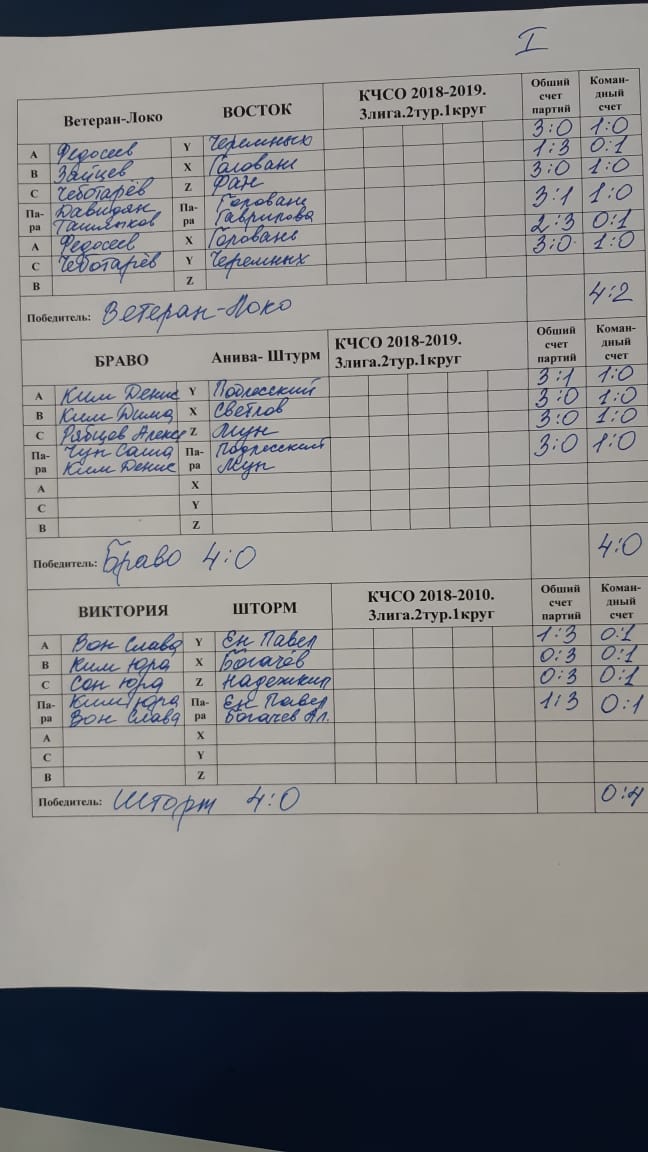 I
Ветеран-Локо ВОСТОК КЧСО 2018-2019. 3лига.2тур.1круг Общий счет партий Коман-дный счет
А Федосеев Y Черемных 3:0 1:0
В Зайцев X Головань 1:3 0:1
С Чеботарёв Z Фан 3:0 1:0
Па-ра Давидян Па-ра Головань 3:1 1:0
Гаврилова
А Федосеев X Головань 2:3 0:1
С Чеботарёв Y Черемных 3:0 1:0
В Z
Победитель: Ветеран-Локо 4:2
БРАВО Анива- Штурм КЧСО 2018-2019. 3лига.2тур.1круг Общий счет партий Коман-дный счет
А Ким Денис Y Подлесский 3:1 1:0
В Ким Дима X Светлов 3:0 1:0
С Рябцев Алекс Z Мун 3:0 1:0
Па-ра Чун Саша Па-ра Подлесский 3:0 1:0
Ким Денис Мун
А X
С Y
В Z
Победитель: Браво 4:0 4:0
ВИКТОРИЯ ШТОРМ КЧСО 2018-2010. 3лига.2тур.1круг Общий счет партий Коман-дный счет
А Вон Слава Y Ен Павел 1:3 0:1
В Ким Юра X Богачёв 0:3 0:1
С Сон Юра Z Надежкин 0:3 0:1
Па-ра Ким Юра Па-ра Ен Павел 1:3 0:1
Вон Слава Богачев Ал.
А X
С Y
В Z
Победитель: Шторм 4:0 0:4